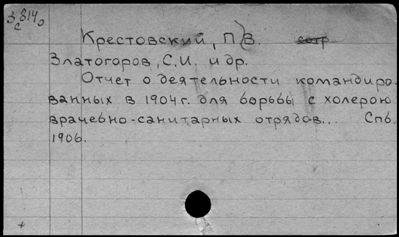 3 814 0
с
Крестовский, П.В.
Златогоров, С.И. и др.
Отчет о деятельности командиро-
ванных в 1904 г. для борьбы с холерою
врачебно-санитарных отрядов... Спб.
1906.
+